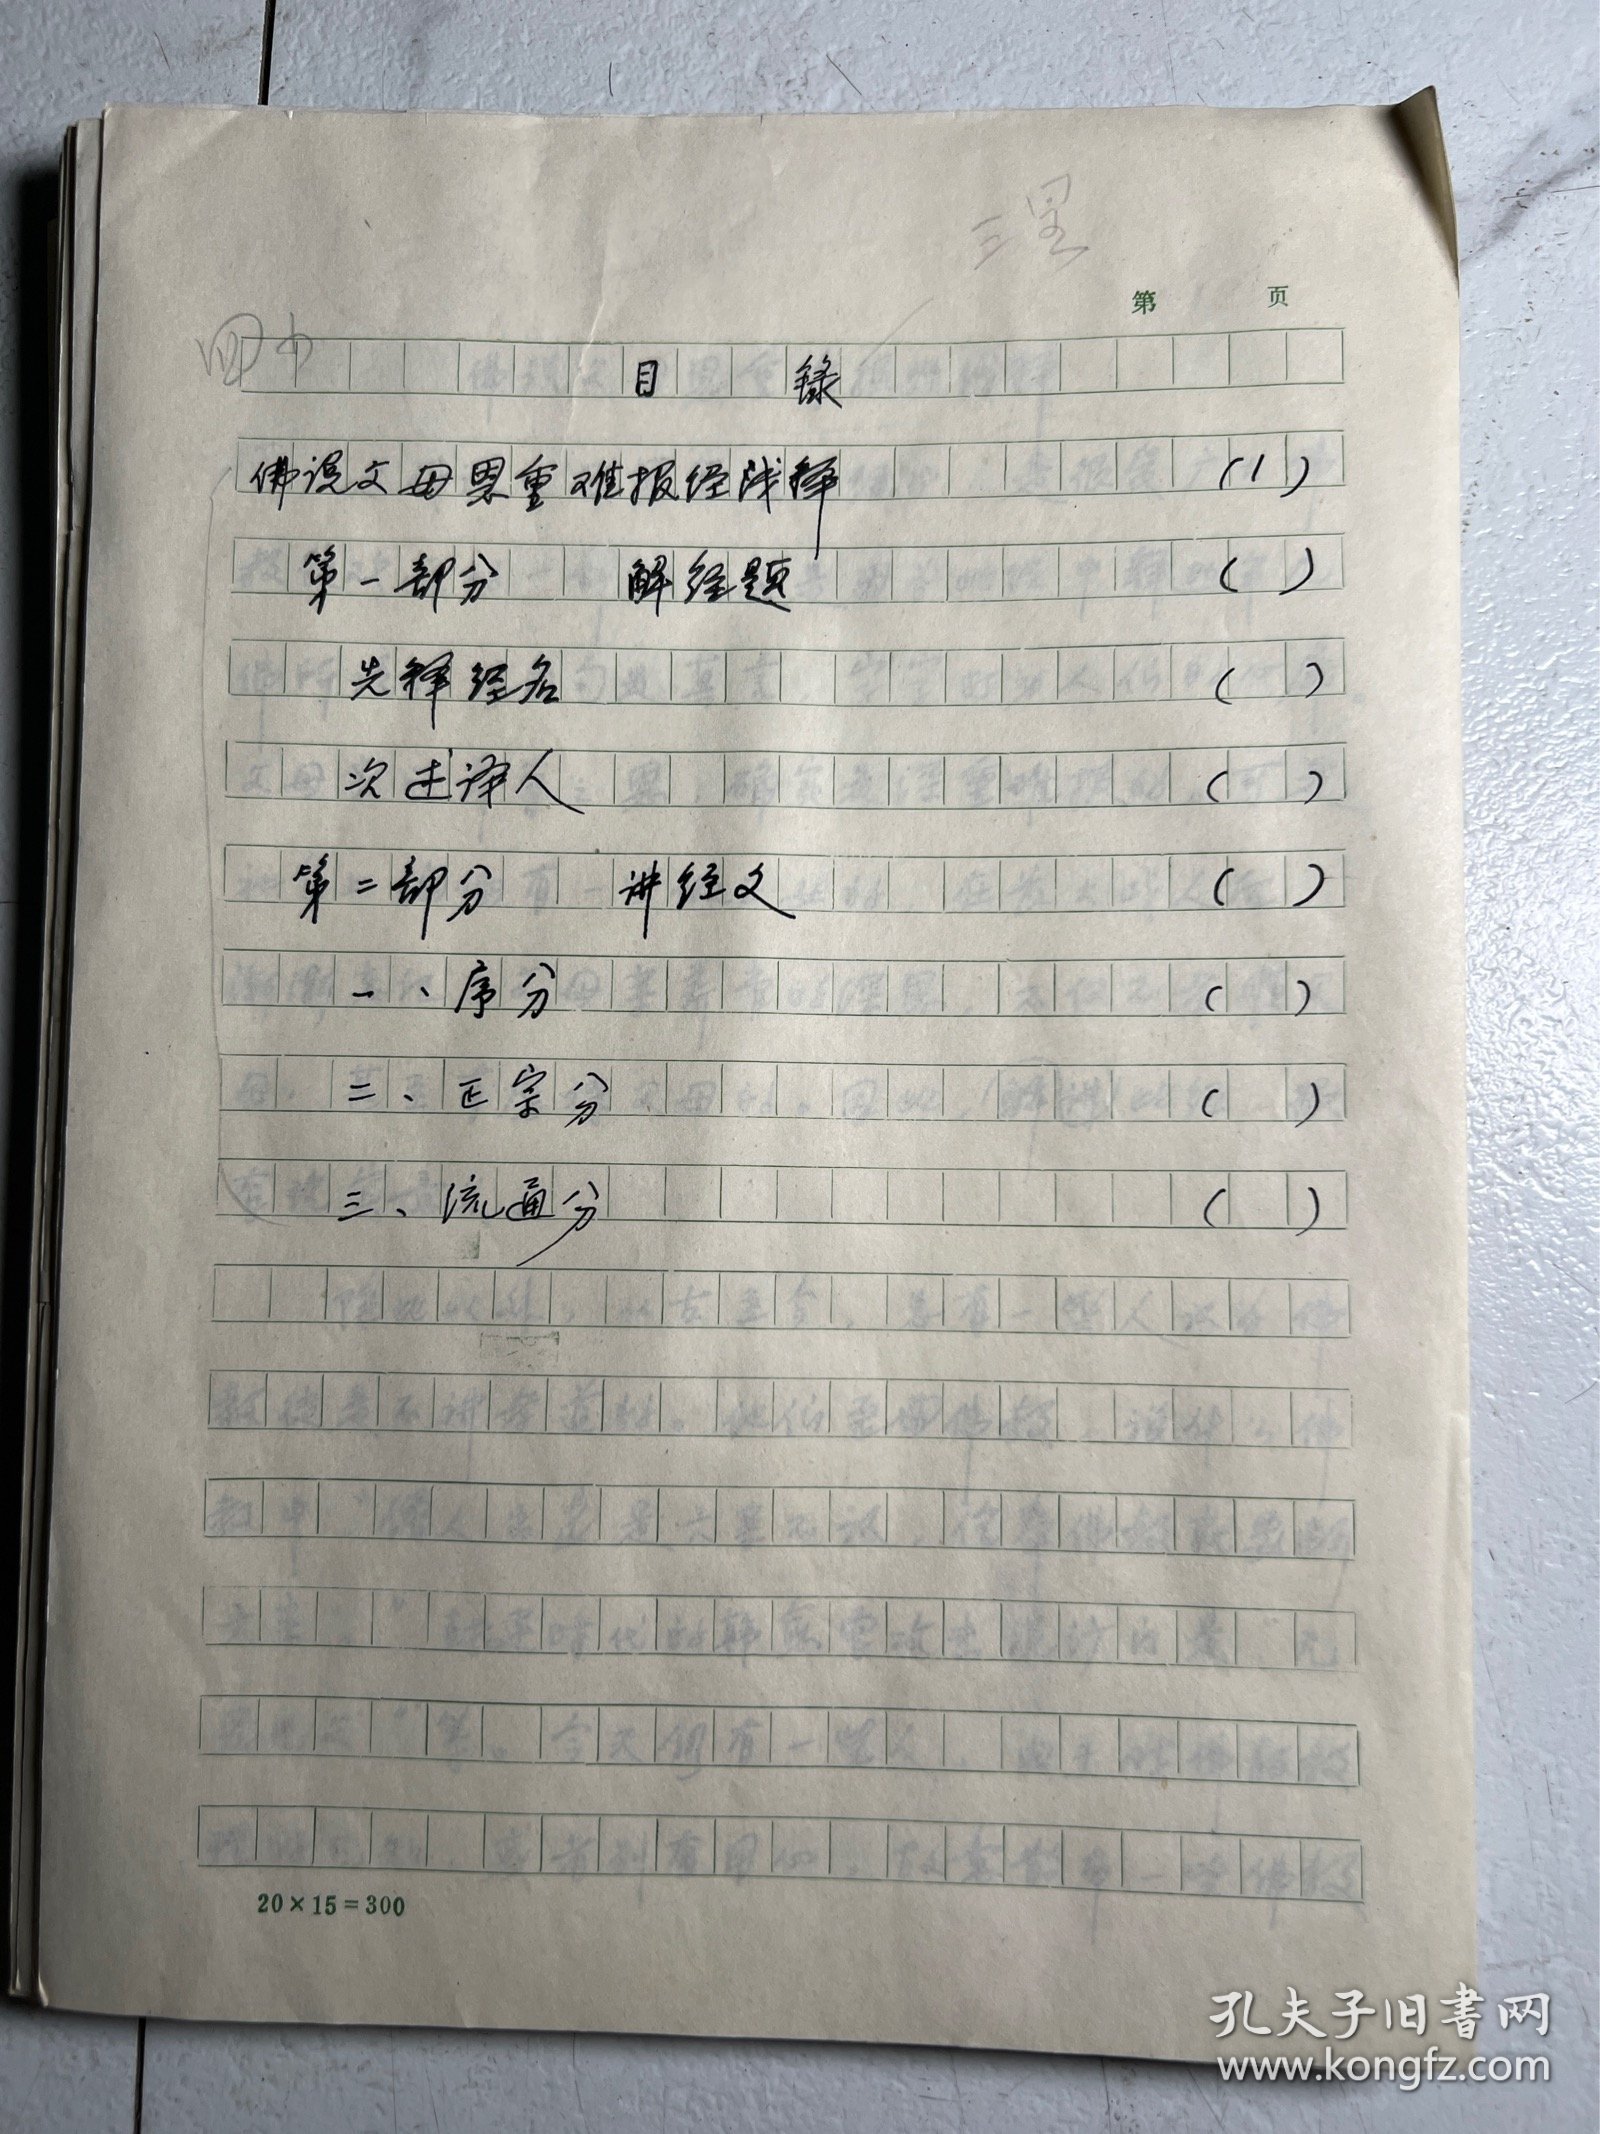 三
第 页
目 録
佛说父母恩重难报经浅释 (1)
第一部分 解经题 ( )
先释经名 ( )
次述译人 ( )
第二部分 讲经文 ( )
一、序分 ( )
二、正宗分 ( )
三、流通分 ( )
20×15=300
孔夫子旧书网
www.kongfz.com